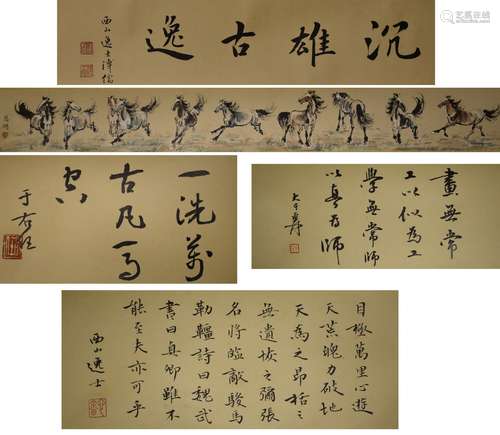 沉雄古逸
西山逸士溥儒
一洗萬
古凡馬
空
于右任
畫無常
工以似為工
學無常師
以真為師
大千爰
目極萬里心遊
天荒魄力破地
天為之昂括之
無遺恢之彌張
名將臨敵駿馬
勒韁詩曰魏武
書曰真卿雖不
能至夫亦可乎
西山逸士